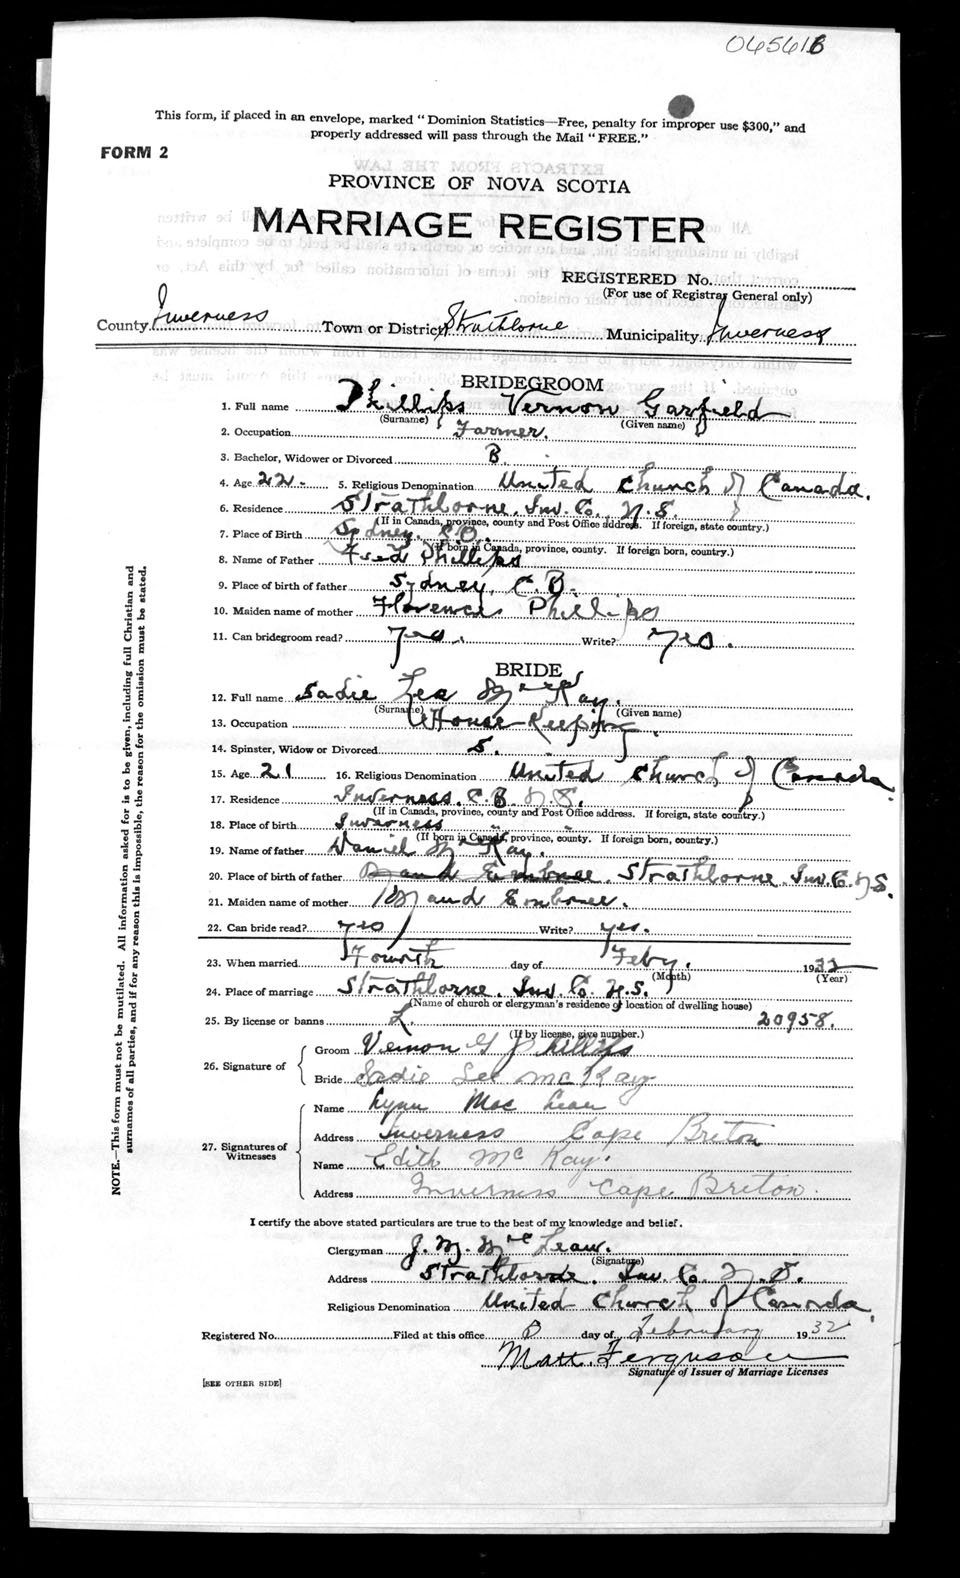 045416
This form, if placed in an envelope, marked "Dominion Statistics—Free, penalty for improper use $300," and
properly addressed will pass through the Mail "FREE."
FORM 2
PROVINCE OF NOVA SCOTIA
MARRIAGE REGISTER
REGISTERED No.
(For use of Registrar General only)
County Inverness Town or District Strathlorne Municipality Inverness
BRIDEGROOM
1. Full name Phillips Vernon Garfield
(Surname) (Given name)
2. Occupation Farmer.
3. Bachelor, Widower or Divorced B.
4. Age 22. 5. Religious Denomination United Church of Canada.
6. Residence Strathlorne, Inv. Co. N.S.
(If in Canada, province, county and Post Office address. If foreign, state country.)
7. Place of Birth Sydney, C.B.
(If born in Canada, province, county. If foreign born, country.)
8. Name of Father Fred Phillips
9. Place of birth of father Sydney, C.B.
10. Maiden name of mother Florence Phillips
11. Can bridegroom read? Yes. Write? Yes.
BRIDE
12. Full name Sadie Lee McKay.
(Surname) (Given name)
13. Occupation House-Keeping.
14. Spinster, Widow or Divorced S.
15. Age 21 16. Religious Denomination United Church of Canada
17. Residence Inverness, C.B. N.S.
(If in Canada, province, county and Post Office address. If foreign, state country.)
18. Place of birth Inverness " "
(If born in Canada, province, county. If foreign born, country.)
19. Name of father Daniel McKay.
20. Place of birth of father Strathlorne. Inv. Co. N.S.
21. Maiden name of mother Maud Embree.
22. Can bride read? yes Write? yes.
23. When married Fourth day of Feby. 1932
(Month) (Year)
24. Place of marriage Strathlorne. Inv. Co. N.S.
(Name of church or clergyman's residence or location of dwelling house)
25. By license or banns L 20958.
(If by license, give number.)
26. Signature of Groom Vernon G Phillips
Bride Sadie Lee McKay
27. Signatures of Witnesses
Name Lynn MacLean
Address Inverness Cape Breton
Name Edith McKay.
Address Inverness Cape Breton.
I certify the above stated particulars are true to the best of my knowledge and belief.
Clergyman J. M. McLean.
(Signature)
Address Strathlorne. Inv. Co. N.S.
Religious Denomination United Church of Canada.
Registered No. Filed at this office day of February 1932
Matt. Ferguson
Signature of Issuer of Marriage Licenses
[SEE OTHER SIDE]
NOTE.—This form must not be mutilated. All information asked for is to be given, including full Christian and
surnames of all parties, and if for any reason this is impossible, the reason for the omission must be stated.